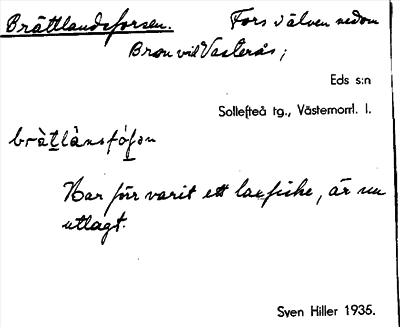 Brättlandsforsen. Fors i älven nedom
Bron vid Västerås;
Eds s:n
Sollefteå tg., Västernorrl. l.
brät̲lànsfófən
Har förr varit ett laxfiske, är nu
utlagt.
Sven Hiller 1935.